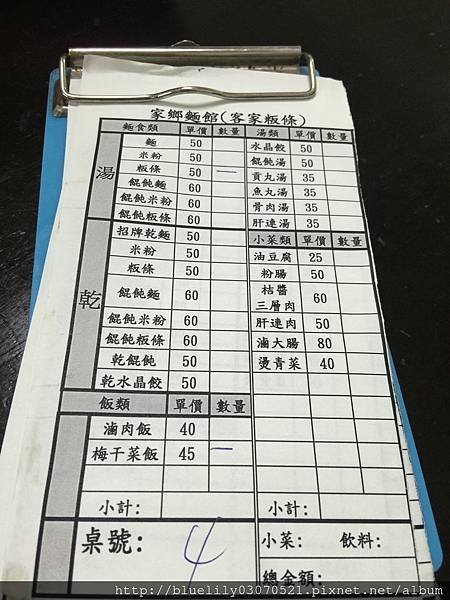 家鄉麵館(客家粄條)
麵食類 單價 數量 湯類 單價 數量
湯
麵 50 水晶餃 50
米粉 50 餛飩湯 50
粄條 50 一 貢丸湯 35
餛飩麵 60 魚丸湯 35
餛飩米粉 60 骨肉湯 35
餛飩粄條 60 肝連湯 35
乾
招牌乾麵 50 小菜類 單價 數量
米粉 50 油豆腐 25
粄條 50 粉腸 50
餛飩麵 60 桔醬三層肉 60
餛飩米粉 60 肝連肉 50
餛飩粄條 60 滷大腸 80
乾餛飩 50 燙青菜 40
乾水晶餃 50
飯類 單價 數量
滷肉飯 40
梅干菜飯 45 一
小計: 小計:
桌號: 4 小菜: 飲料:
總金額:
http://bluelily03070521.pixnet.net/album